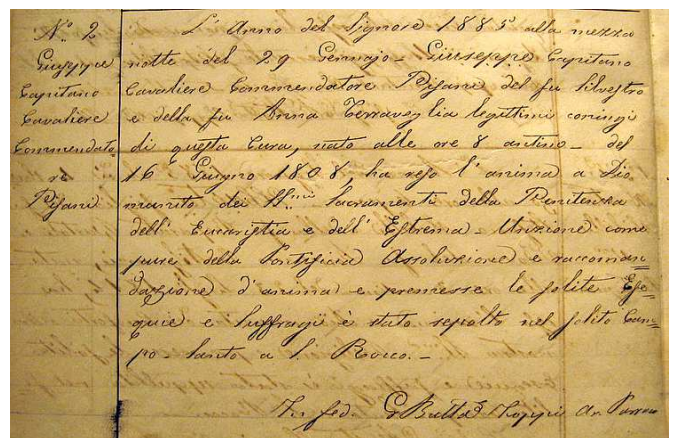 N.º 2
Giuseppe
Capitano
Cavaliere
Commendato
re
Pisani
L'Anno del Signore 1885 alla mezza
notte del 29 Gennajo - Giuseppe Capitano
Cavaliere Commendatore Pisani del fu Silvestro
e della fu Anna Terraveglia legittimi coniugi
di questa Cura, nato alle ore 8 antine - del
16 Giugno 1808, ha reso l'anima a Dio
munito dei SS.mi Sacramenti della Penitenza
dell' Eucaristia e dell' Estrema - Unzione come
pure della Pontificia Assoluzione e raccoman=
dazione d'anima e premesse le solite Ese=
quie e Suffragii è stato sepolto nel solito Cam=
po - Santo a S. Rocco. -
In fed. GBatta Zoppi Ar. Parroco